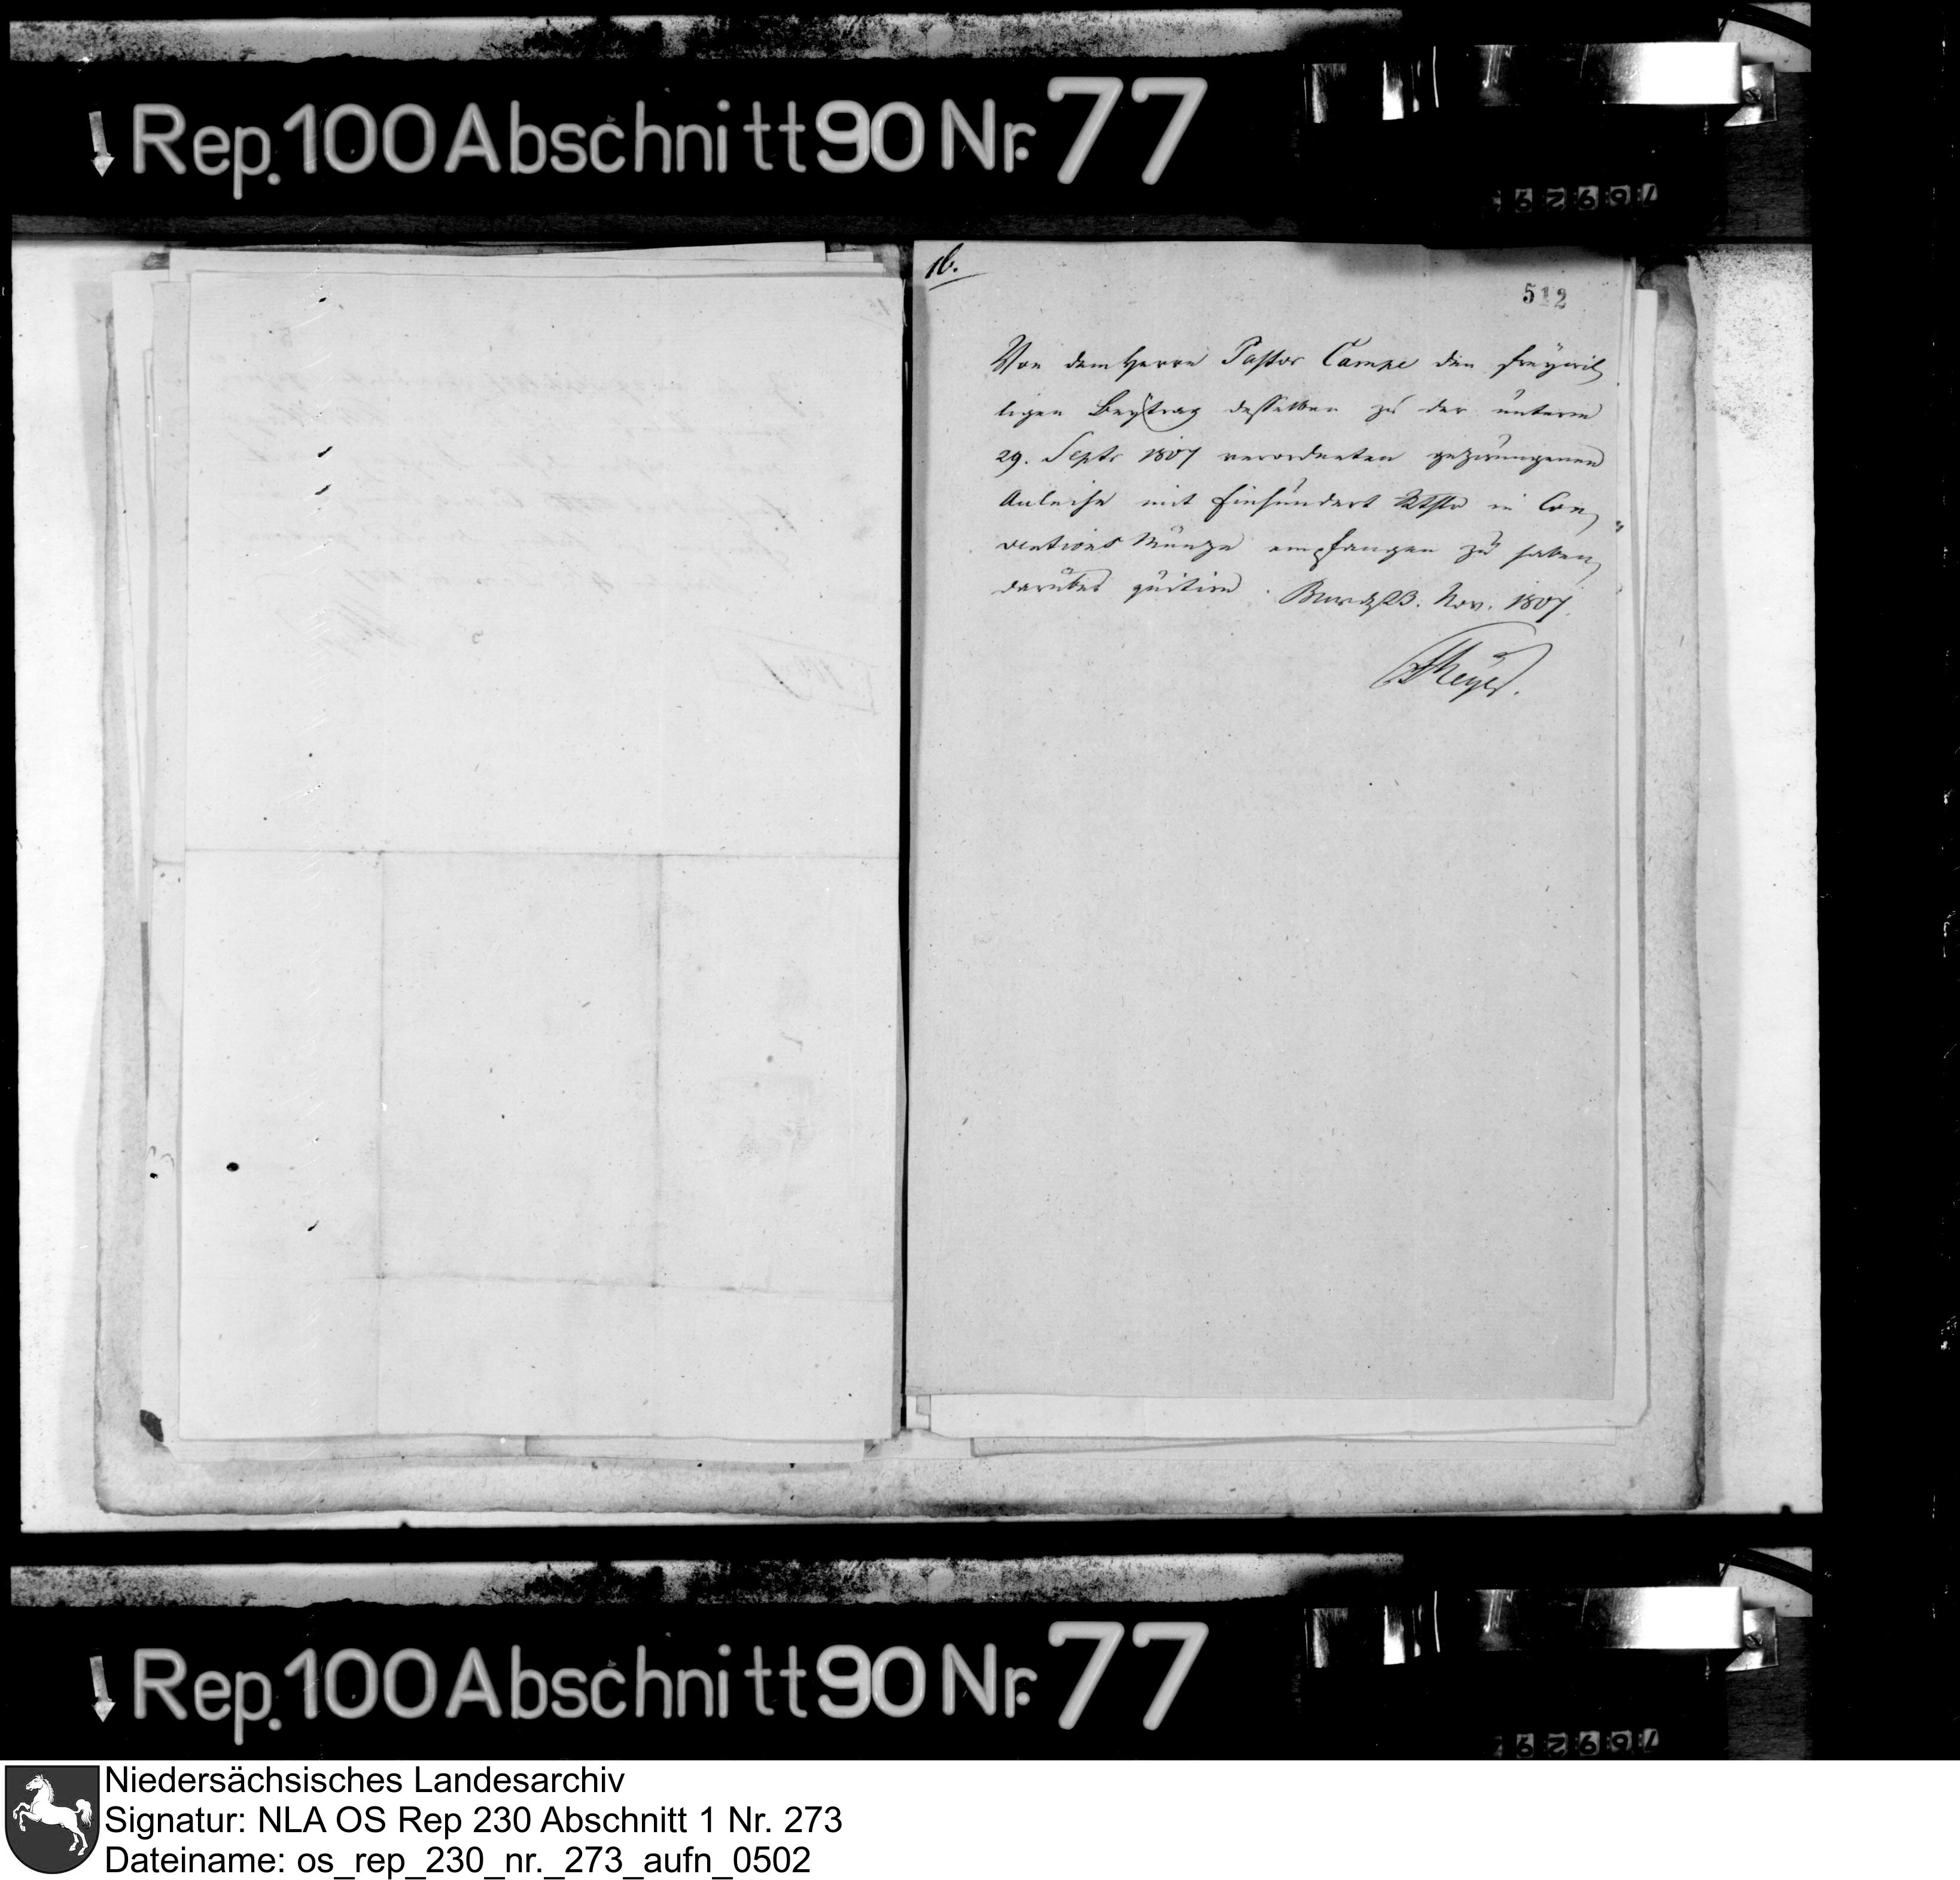 Rep. 100 Abschnitt 90 Nr. 77
16.
512
Von dem Herrn Pastor Campe den freywil
ligen Beytrag desselben zu der unterm
29. Septr 1807 verordneten gezwungenen
Anleihe mit Einhundert Rthlr in Con
ventions Münze empfangen zu haben
darüber quitire. 23. Nov. 1807.
Meyer.
Rep. 100 Abschnitt 90 Nr. 77
Niedersächsisches Landesarchiv
Signatur: NLA OS Rep 230 Abschnitt 1 Nr. 273
Dateiname: os_rep_230_nr._273_aufn_0502